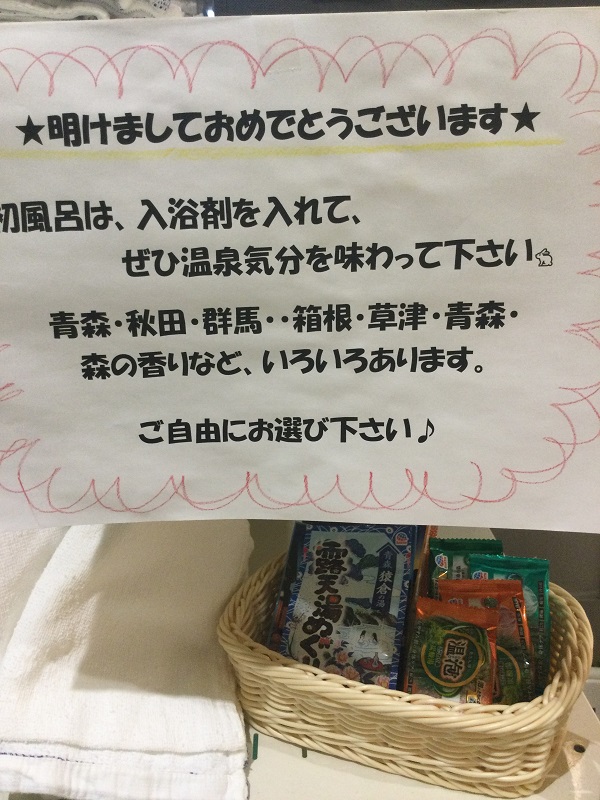 ★明けましておめでとうございます★
初風呂は、入浴剤を入れて、
ぜひ温泉気分を味わって下さい
青森・秋田・群馬・・箱根・草津・青森・
森の香りなど、いろいろあります。
ご自由にお選び下さい♪
露天湯めぐり
温泡